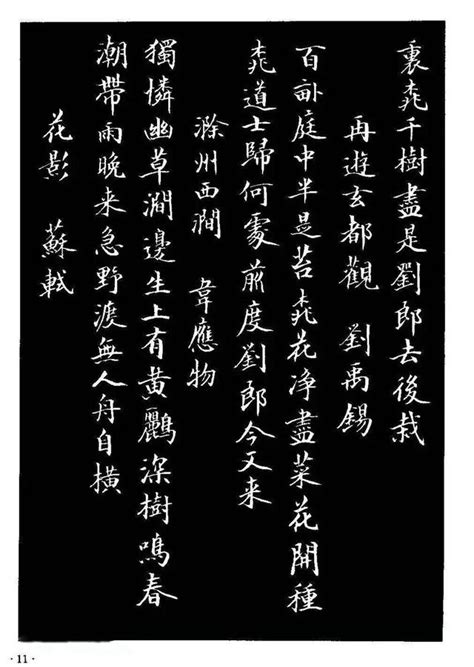 裏桃千樹盡是劉郎去後栽
再遊玄都觀　劉禹錫
百畝庭中半是苔桃花淨盡菜花開種
桃道士歸何處前度劉郎今又来
滁州西澗　韋應物
獨憐幽草澗邊生上有黃鸝深樹鳴春
潮帶雨晚来急野渡無人舟自橫
花影　蘇軾
·11·